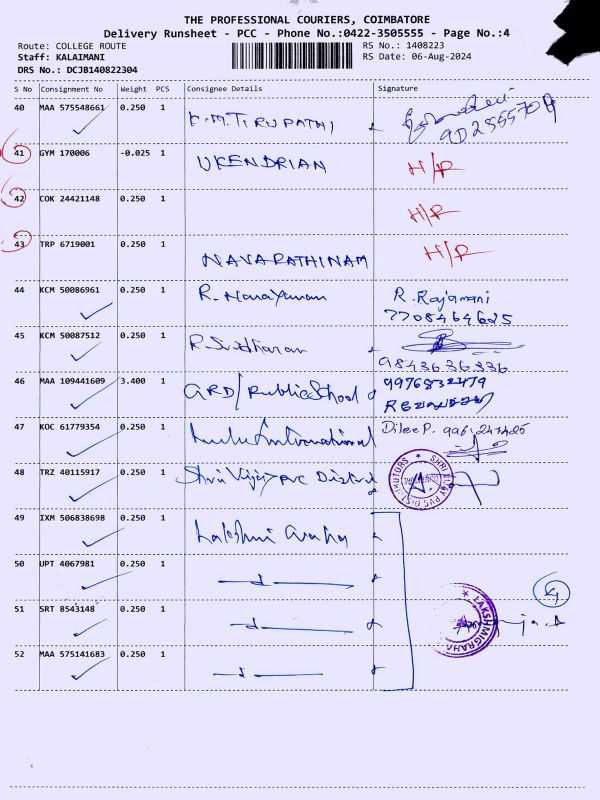 THE PROFESSIONAL COURIERS, COIMBATORE
Delivery Runsheet - PCC - Phone No.:0422-3505555 - Page No.:4
Route: COLLEGE ROUTE RS No.: 1408223
Staff: KALAIMANI RS Date: 06-Aug-2024
DRS No.: DCJB140822304
S No Consignment No Weight PCS Consignee Details Signature
40 MAA 575548661 0.250 1 K.M.TIRUPATHI
41 GYM 170006 -0.025 1 UKENDRIAN H/R
42 COK 24421148 0.250 1 H/R
43 TRP 6719001 0.250 1 NAVARATHINAM H/R
44 KCM 50086961 0.250 1 R. Narayanan R. Rajamani
7708464625
45 KCM 50087512 0.250 1 R.Sridharan
9843636336
46 MAA 109441609 3.400 1 GRD/Public School 9976832479
47 KOC 61779354 0.250 1 Lulu International Dileep.
48 TRZ 40115917 0.250 1 Shri Vijay PVC SHRI VIJAY PVC DISTRIBUTORS
49 IXM 506838698 0.250 1 Lakshmi
50 UPT 4067981 0.250 1
51 SRT 8543148 0.250 1 LAKSHMIGRAHA
52 MAA 575141683 0.250 1